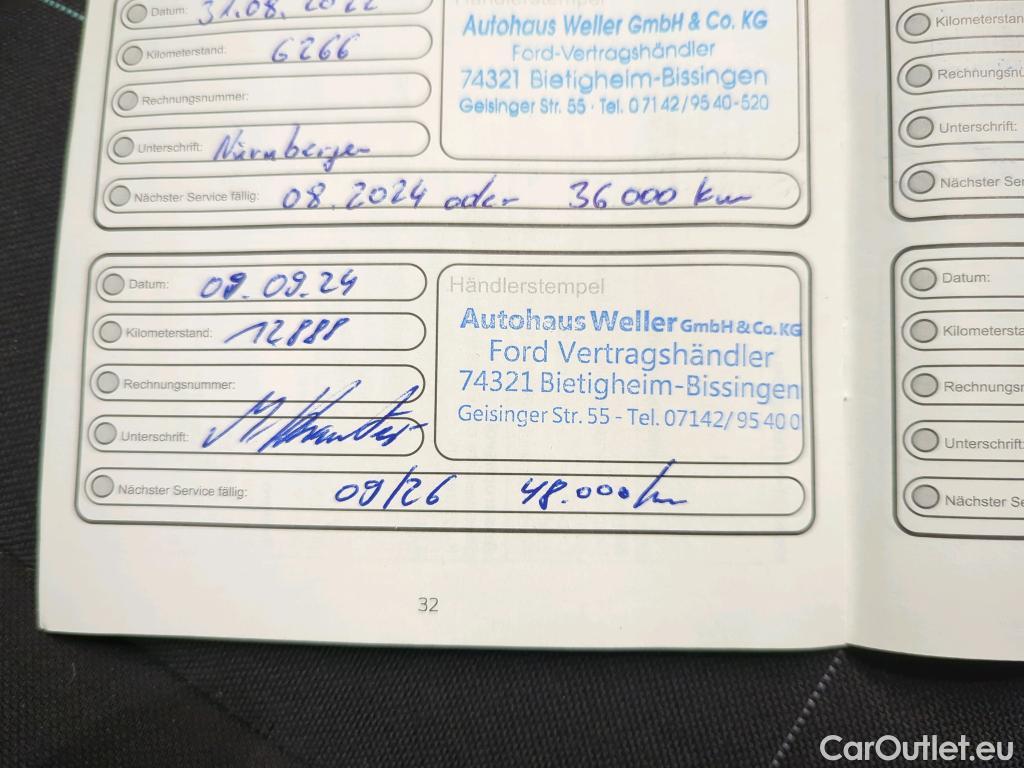 Datum: 31.08.2022
Händlerstempel
Kilometerstand: 6266
Rechnungsnummer:
Unterschrift: Nürnberger
Nächster Service fällig: 08.2024 oder 36000 km
Autohaus Weller GmbH & Co. KG
Ford-Vertragshändler
74321 Bietigheim-Bissingen
Geisinger Str. 55 · Tel. 07142/9540-520
Datum: 09.09.24
Kilometerstand: 12888
Rechnungsnummer:
Unterschrift:
Nächster Service fällig: 09/26 48.000 km
Händlerstempel
Autohaus Weller GmbH & Co. KG
Ford Vertragshändler
74321 Bietigheim-Bissingen
Geisinger Str. 55 - Tel. 07142/95 40 0
32
Unterschrift:
Datum:
Unterschrift:
CarOutlet.eu